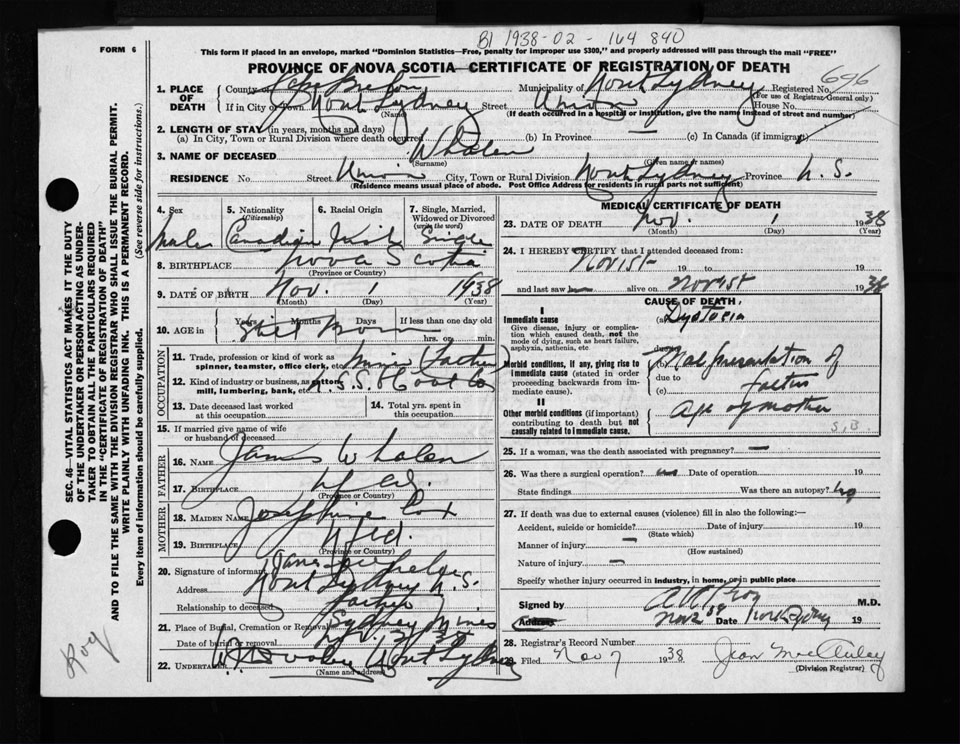 BI 1938-02-164 840
FORM 6
This form if placed in an envelope, marked "Dominion Statistics—Free, penalty for improper use $300," and properly addressed will pass through the mail "FREE"
PROVINCE OF NOVA SCOTIA—CERTIFICATE OF REGISTRATION OF DEATH
1. PLACE OF DEATH
County of Cape Breton Municipality of North Sydney Registered No. 696
(For use of Registrar-General only)
If in City or Town North Sydney Street Union House No.
(Name) (If death occurred in a hospital or institution, give the name instead of street and number)
2. LENGTH OF STAY (in years, months and days)
(a) In City, Town or Rural Division where death occurred (b) In Province — (c) In Canada (if immigrant)
3. NAME OF DECEASED Whalen
(Surname) (Given name or names)
RESIDENCE No. Street Union City, Town or Rural Division North Sydney Province N. S.
(Residence means usual place of abode. Post Office Address for residents in rural parts not sufficient)
4. Sex Male
5. Nationality (Citizenship) Canadian
6. Racial Origin Irish
7. Single, Married, Widowed or Divorced (write the word) Single
8. BIRTHPLACE Nova Scotia
(Province or Country)
9. DATE OF BIRTH Nov. 1 1938
(Month) (Day) (Year)
10. AGE in Years Months Days If less than one day old
Still Born hrs. or min.
OCCUPATION
11. Trade, profession or kind of work as spinner, teamster, office clerk, etc. (Father)
12. Kind of industry or business, as cotton mill, lumbering, bank, etc. N.S.S. & Coal Co
13. Date deceased last worked at this occupation
14. Total yrs. spent in this occupation
15. If married give name of wife or husband of deceased
FATHER
16. NAME James Whalen
17. BIRTHPLACE Nfld.
(Province or Country)
MOTHER
18. MAIDEN NAME Josephine Cox
19. BIRTHPLACE Nfld.
(Province or Country)
20. Signature of informant James
Address North Sydney N.S.
Relationship to deceased Father
21. Place of Burial, Cremation or Removal Sydney Mines
Date of burial or removal
22. UNDERTAKER North Sydney
(Name and address)
MEDICAL CERTIFICATE OF DEATH
23. DATE OF DEATH Nov. 1 1938
(Month) (Day) (Year)
24. I HEREBY CERTIFY that I attended deceased from:
Nov 1st 19 to 19
and last saw alive on Nov 1st 1938
CAUSE OF DEATH
I
Immediate cause
Give disease, injury or complication which caused death, not the mode of dying, such as heart failure, asphyxia, asthenia, etc
(a) Dystocia
due to
Morbid conditions, if any, giving rise to immediate cause (stated in order proceeding backwards from immediate cause).
(b) Malpresentation of
due to foetus
(c)
II
Other morbid conditions (if important) contributing to death but not causally related to immediate cause.
Age of mother
S.B.
25. If a woman, was the death associated with pregnancy? —
26. Was there a surgical operation? no Date of operation 19
State findings Was there an autopsy? no
27. If death was due to external causes (violence) fill in also the following:—
Accident, suicide or homicide? Date of injury 19
(State which)
Manner of injury —
(How sustained)
Nature of injury —
Specify whether injury occurred in industry, in home, or in public place
Signed by M.D.
Address Date 19
28. Registrar's Record Number
29. Filed Nov 7 1938 Jean MacAulay
(Division Registrar)
SEC. 46—VITAL STATISTICS ACT MAKES IT THE DUTY
OF THE UNDERTAKER OR PERSON ACTING AS UNDER-
TAKER TO OBTAIN ALL THE PARTICULARS REQUIRED
IN THE "CERTIFICATE OF REGISTRATION OF DEATH"
AND TO FILE THE SAME WITH THE DIVISION REGISTRAR WHO SHALL ISSUE THE BURIAL PERMIT.
WRITE PLAINLY WITH UNFADING INK. THIS IS A PERMANENT RECORD.
Every item of information should be carefully supplied. (See reverse side for instructions.)